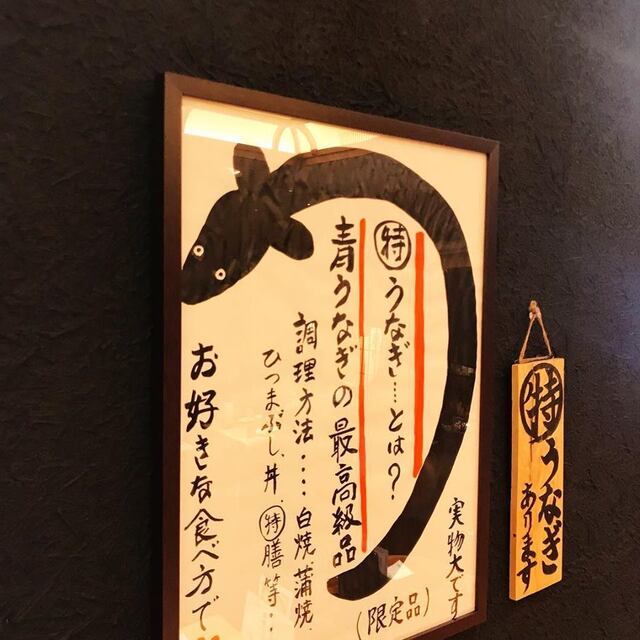 特うなぎ…とは?
青うなぎの最高級品
調理方法‥‥白焼、蒲焼、
ひつまぶし、丼、特膳等…
お好きな食べ方で
実物大です
(限定品)
特うなぎ
あります